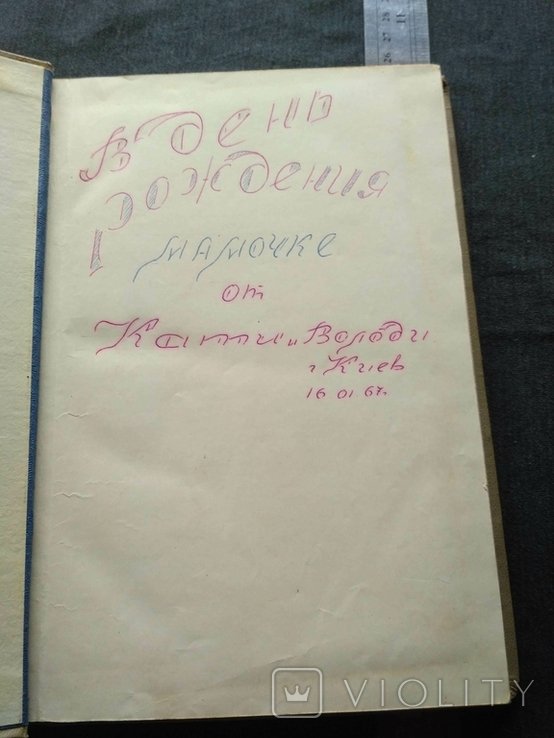 В день
рождения
мамочке
от
Кати и Володи
г Киев
16 01 67г.
26 27 28
11
VIOLITY